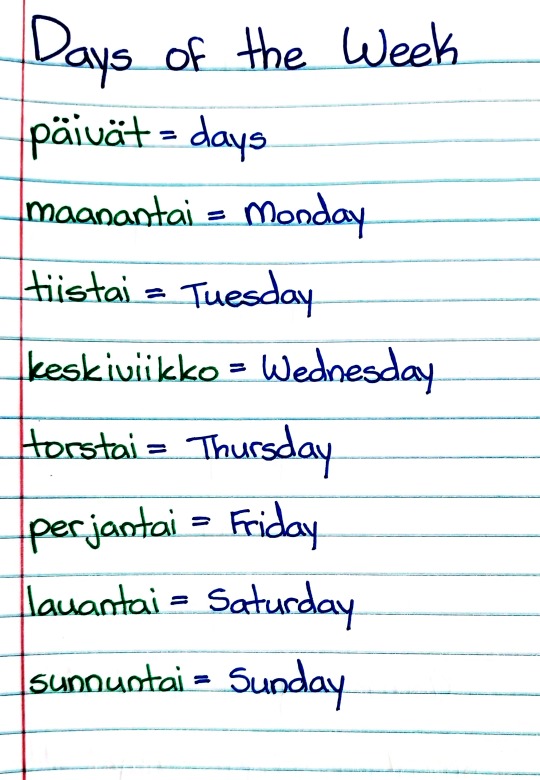 Days of the Week
päivät = days
maanantai = Monday
tiistai = Tuesday
keskiviikko = Wednesday
torstai = Thursday
perjantai = Friday
lauantai = Saturday
sunnuntai = Sunday